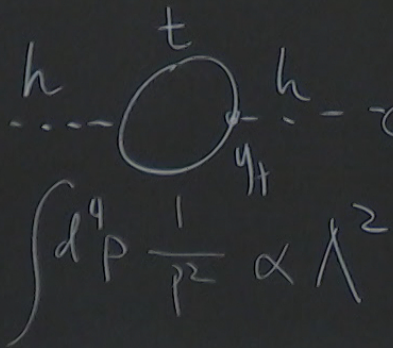 t
h h
y_t
∫ d⁴p 1/p² ∝ Λ²